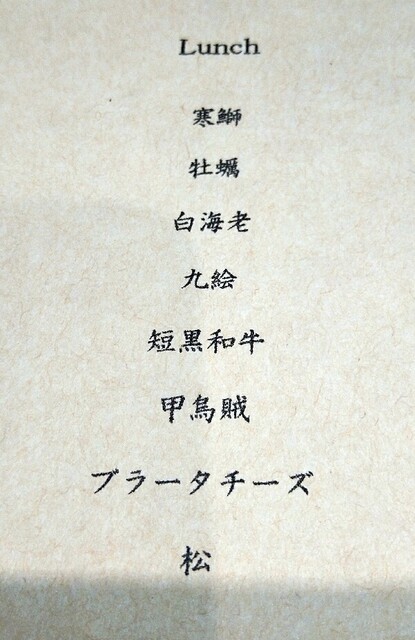 Lunch
寒鰤
牡蠣
白海老
九絵
短黒和牛
甲烏賊
ブラータチーズ
松